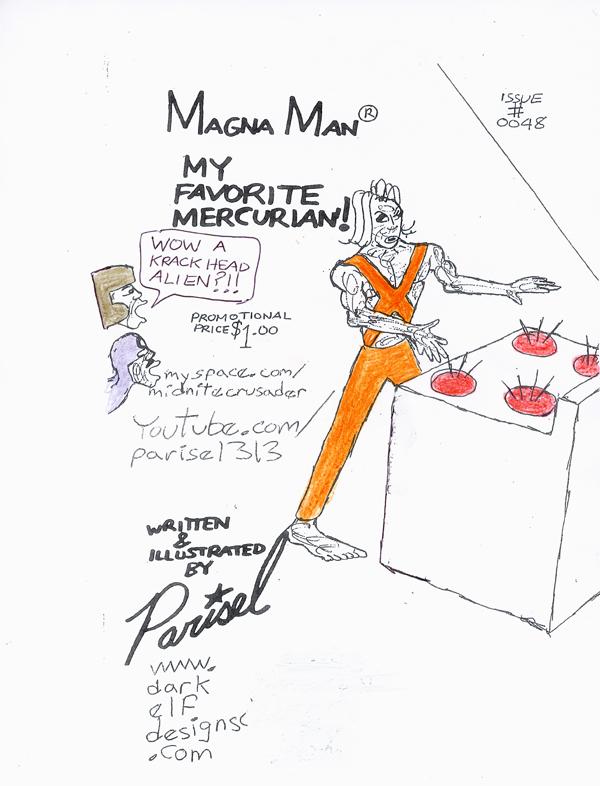 MAGNA MAN®
ISSUE
#
0048
MY
FAVORITE
MERCURIAN!
WOW A
KRACK HEAD
ALIEN?!!
PROMOTIONAL
PRICE $1.00
myspace.com/
midnitecrusader
Youtube.com/
parisel1313
WRITTEN
&
ILLUSTRATED
BY
Parisel
www.
dark
elf
designsc
.com